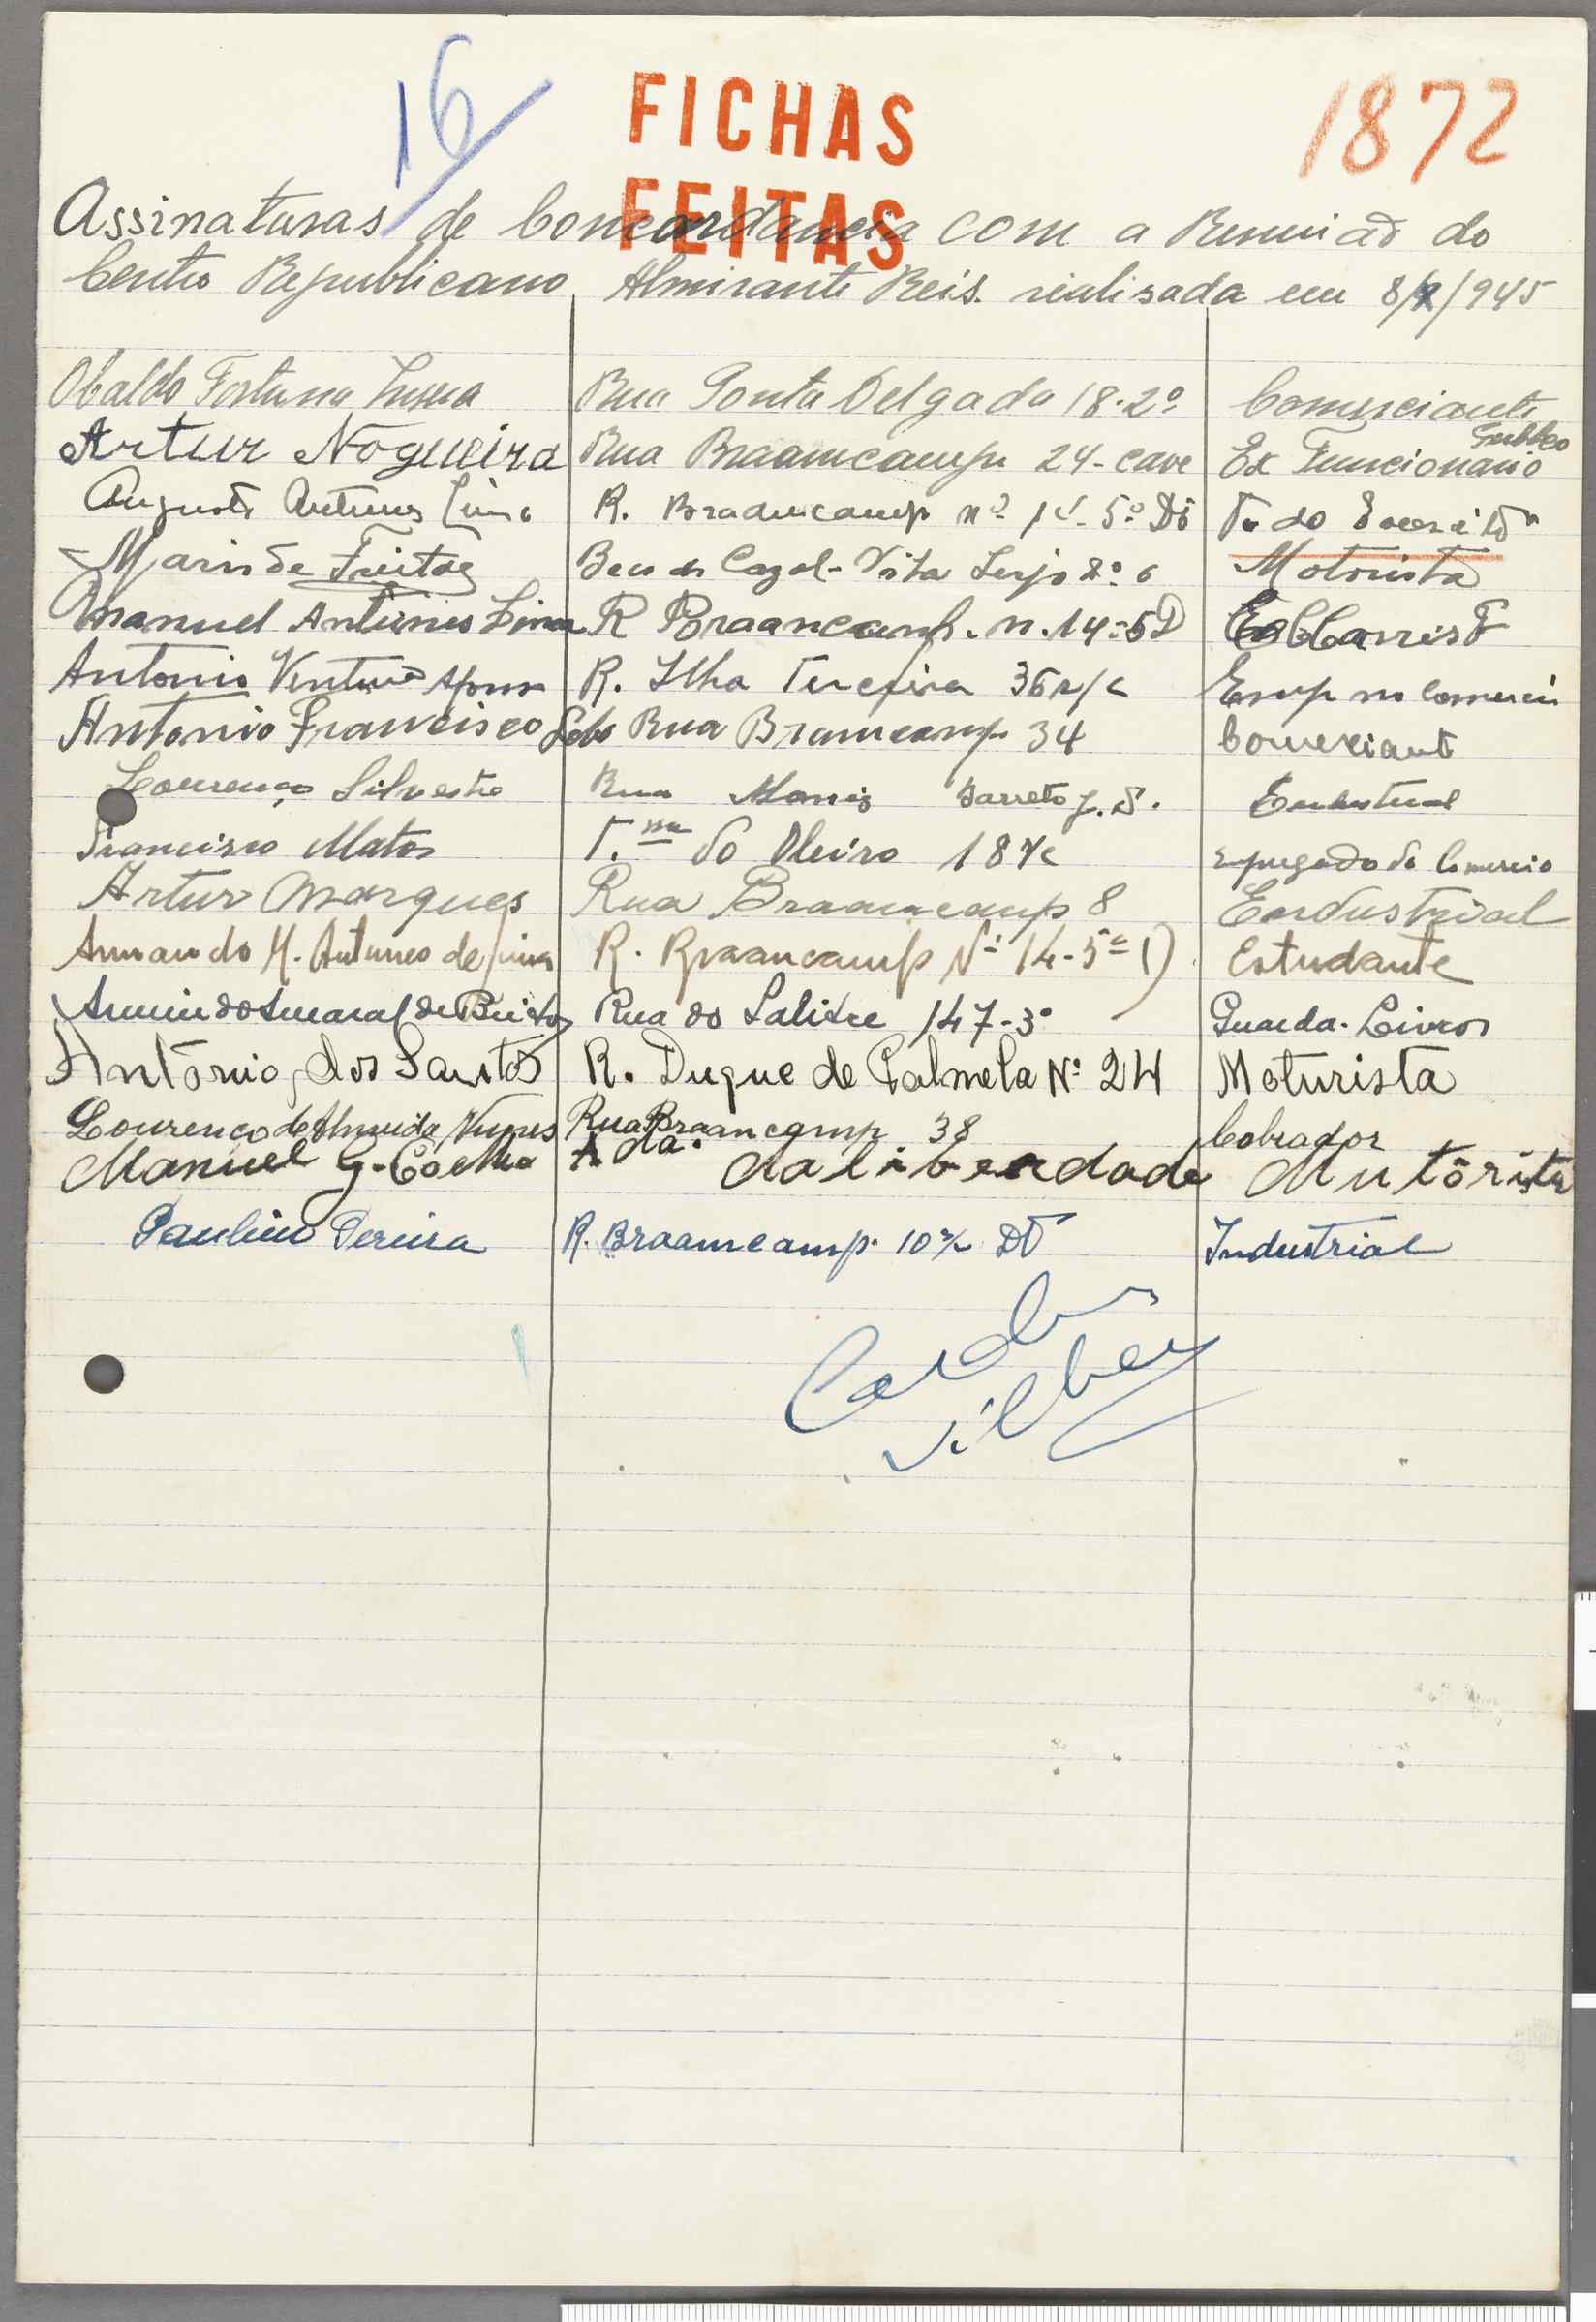 16
FICHAS
FEITAS
1872
Assinaturas de Concordancia com a Reunião do
Centro Republicano Almirante Reis. realisada em 8/ /945
Obaldo Fortuna Rua Ponta Delgada 18-2º Comerciante
Artur Nogueira Rua Braamcamp 24-cave Ex Funcionario Publico
Augusto Antunes Lima R. Braamcamp nº 14-5º Dº do Exercito
Freitas Motorista
Manuel Antunes Lima R Braancamp. n. 14-5D
Antonio Ventura R. Ilha Terceira 36 r/c Emp no Comercio
Antonio Francisco Lobo Rua Bramcamp 34 Comerciant
Lourenço Silvestre Rua Moniz Barreto J. S. Endustrial
Francisco Matos T.ssa do Oleiro 18 r/c empregado do Comercio
Artur Marques Rua Braamcamp 8 Endustrial
Armando M. Antunes de Lima R. Braancamp Nº 14-5º D Estudante
Armindo Amaral de Brito Rua do Salitre 147-3º Guarda-Livros
António dos Santos R. Duque de Palmela Nº 24 Moturista
Lourenço de Almeida Nunes Rua Braancamp 38 Cobrador
Manuel G. Coelho A da. da liberdade Mutôrista
Paulino Pereira R. Braamcamp 10 r/c DT Industrial